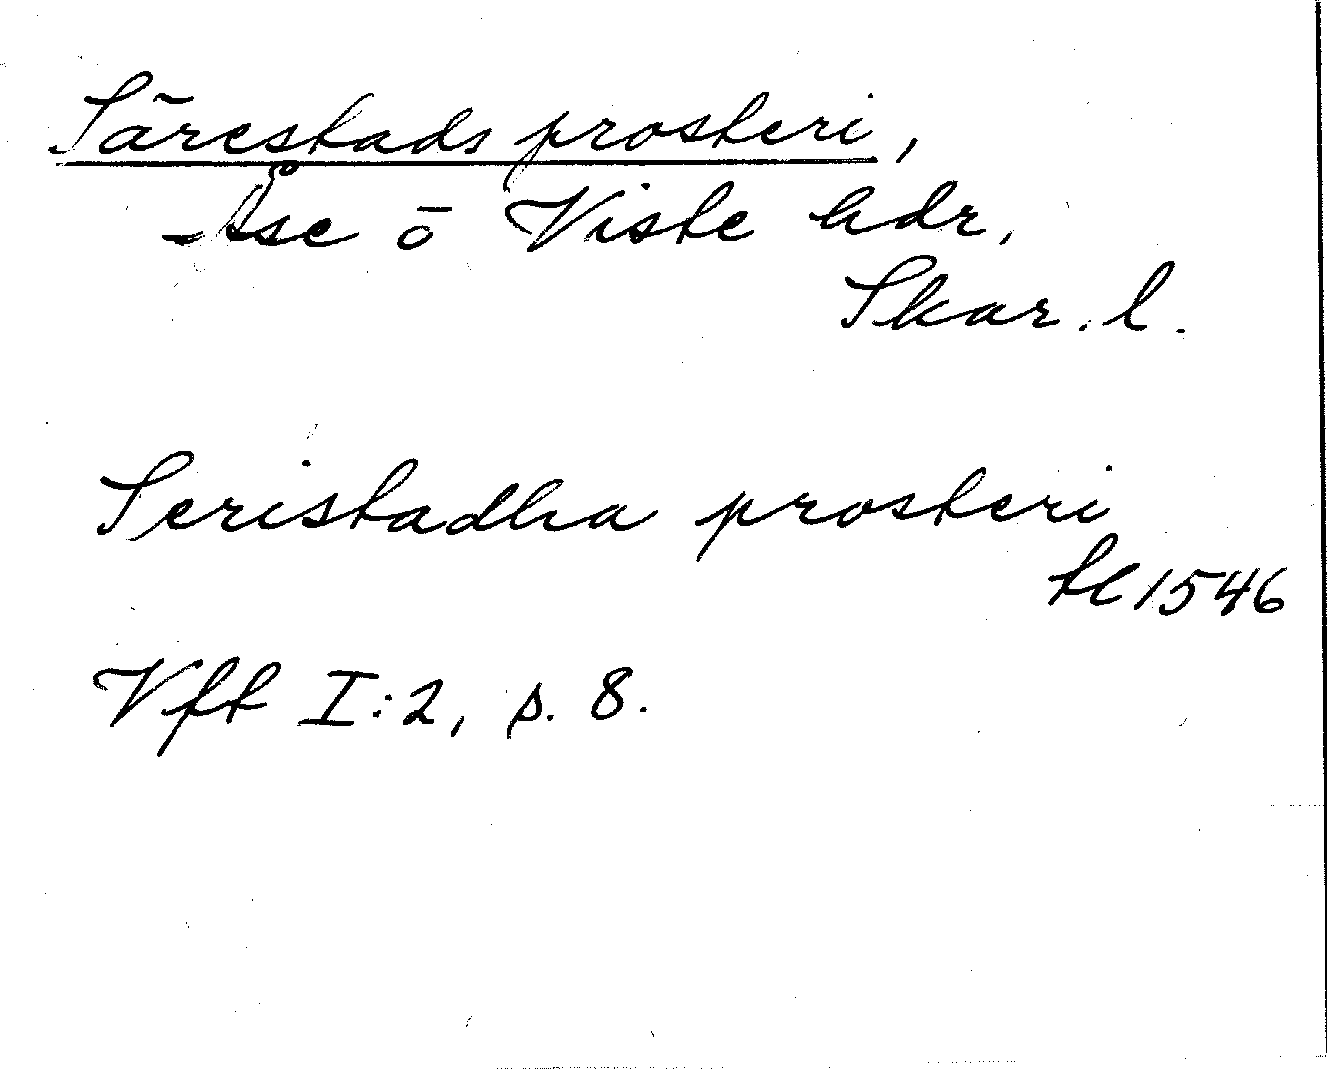 Särestads prosteri,
Åse ö Viste hdr,
Skar. l.
Seristadha prosteri
tl 1546
Vft I:2, p. 8.